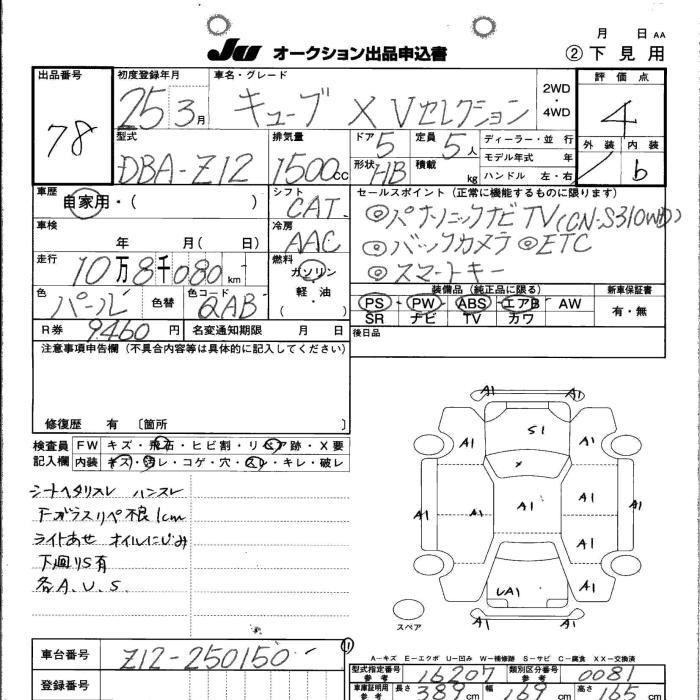 月 日 AA
JU オークション出品申込書 ② 下見用
出品番号 初度登録年月 車名・グレード 2WD・4WD 評価点
78 25 3月 キューブ X Vセレクション 4
型式 排気量 ドア 5 定員 5人 ディーラー・並行 外装 内装
DBA-Z12 1500cc 形状 HB 積載 kg モデル年式 年 b
ハンドル 左・右
車歴 シフト セールスポイント (正常に機能するものに限ります)
自家用・( ) CAT ◎パナソニックナビTV(CN-S310WD)
車検 冷房 ◎バックカメラ ◎ETC
年 月( 日) AAC ◎スマートキー
走行 燃料
10万8千080km ガソリン・軽・油 ( )
装備品 (純正品に限る) 新車保証書
色 パール 色替 色コード QAB PS PW ABS エアB AW 有・無
SR ナビ TV カワ
R券 9460円 名変通知期限 月 日 後日品
注意事項申告欄 (不具合内容等は具体的に記入してください)
修復歴 有 〔箇所 〕
検査員 FW キズ・飛石・ヒビ割・リペア跡・X要
記入欄 内装 キズ・汚レ・コゲ・穴・スレ・キレ・破レ
シートヘタリスレ ハンスレ
Fガラスリペ不良1cm
ライトあせ オイルにじみ
下廻りS有
各A.U.S.
A1 A1
A1 S1 A1
A1 A1 A1 A1 A1
A1
A1 UA1 A1
A1 A1
スペア
A-キズ E-エクボ U-凹み W-補修跡 S-サビ C-腐食 XX-交換済
車台番号 Z12-250150 型式指定番号 参考 16207 類別区分番号 参考 0081
登録番号 車庫証明用 参考 長さ 389cm 幅 169cm 高さ 165cm